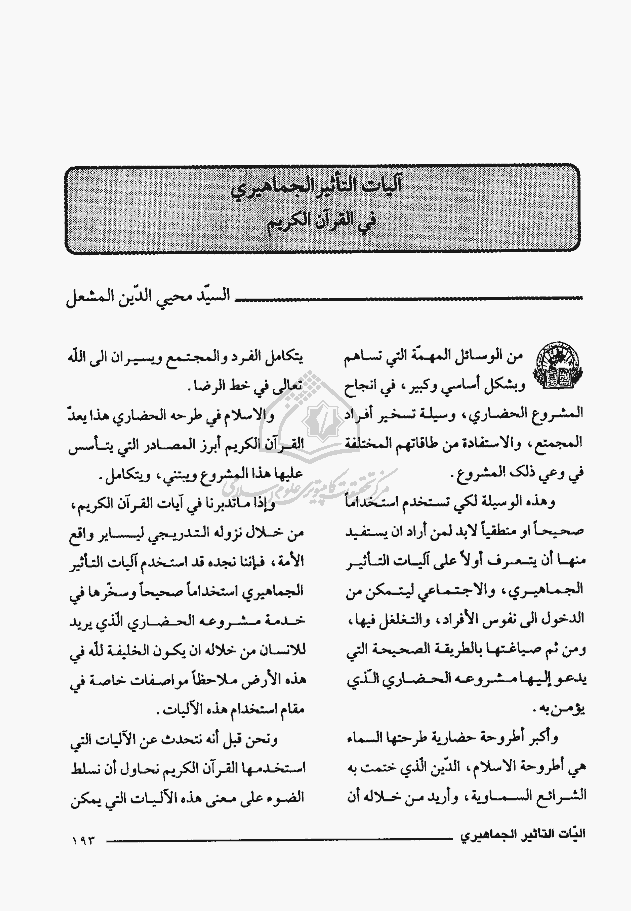 آليات التأثير الجماهيري
في القرآن الكريم
السيّد محيي الدّين المشعل
من الوسائل المهمّة التي تساهم
وبشكل أساسي وكبير، في انجاح
المشروع الحضاري، وسيلة تسخير أفراد
المجمتع، والاستفادة من طاقاتهم المختلفة
في وعي ذلك المشروع.
وهذه الوسيلة لكي تستخدم استخداماً
صحيحاً او منطقياً لابد لمن أراد ان يستفيد
منها أن يتعرف أولاً على آليات التأثير
الجماهيري، والاجتماعي ليتمكن من
الدخول الى نفوس الأفراد، والتغلغل فيها،
ومن ثم صياغتها بالطريقة الصحيحة التي
يدعو إليها مشروعه الحضاري الّذي
يؤمن به.
وأكبر أطروحة حضارية طرحتها السماء
هي أطروحة الاسلام، الدّين الّذي ختمت به
الشرائع السماوية، وأريد من خلاله أن
يتكامل الفرد والمجتمع ويسيران الى اللّه
تعالى في خط الرضا.
والاسلام في طرحه الحضاري هذا يعدّ
القرآن الكريم أبرز المصادر التي يتأسس
عليها هذا المشروع ويبتني، ويتكامل.
وإذا ماتدبرنا في آيات القرآن الكريم،
من خلال نزوله التدريجي ليساير واقع
الأمة، فإننا نجده قد استخدم آليات التأثير
الجماهيري استخداماً صحيحاً وسخّرها في
خدمة مشروعه الحضاري الّذي يريد
للانسان من خلاله ان يكون الخليفة للّه في
هذه الأرض ملاحظاً مواصفات خاصة في
مقام استخدام هذه الآليات.
ونحن قبل أنه نتحدث عن الآليات التي
استخدمها القرآن الكريم نحاول أن نسلط
الضوء على معنى هذه الآليات التي يمكن
اليّات التاثير الجماهيري
١٩٣
مركز تحقيقات كامپيوترى علوم اسلامى